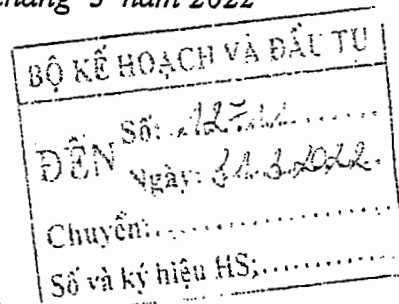 tháng 3 năm 2022
BỘ KẾ HOẠCH VÀ ĐẦU TƯ
ĐẾN
Số:
Ngày: 31.3.2022
Chuyển:
Số và ký hiệu HS: